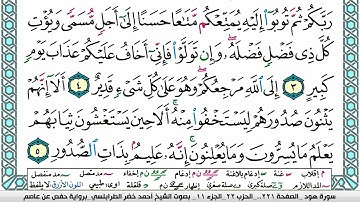 رَبَّكُمْ ثُمَّ تُوبُوٓا۟ إِلَيْهِ يُمَتِّعْكُم مَّتَٰعًا حَسَنًا إِلَىٰٓ أَجَلٍ مُّسَمًّى وَيُؤْتِ
كُلَّ ذِى فَضْلٍ فَضْلَهُۥ ۖ وَإِن تَوَلَّوْا۟ فَإِنِّىٓ أَخَافُ عَلَيْكُمْ عَذَابَ يَوْمٍ
كَبِيرٍ ٣ إِلَى ٱللَّهِ مَرْجِعُكُمْ ۖ وَهُوَ عَلَىٰ كُلِّ شَىْءٍ قَدِيرٌ ٤ أَلَآ إِنَّهُمْ
يَثْنُونَ صُدُورَهُمْ لِيَسْتَخْفُوا۟ مِنْهُ ۚ أَلَا حِينَ يَسْتَغْشُونَ ثِيَابَهُمْ
يَعْلَمُ مَا يُسِرُّونَ وَمَا يُعْلِنُونَ ۚ إِنَّهُۥ عَلِيمٌۢ بِذَاتِ ٱلصُّدُورِ ٥
سورة هود الصفحة ٢٢١ الحزب ٢٢ الجزء ١١ بصوت الشيخ أحمد خضر الطرابلسي برواية حفص عن عاصم